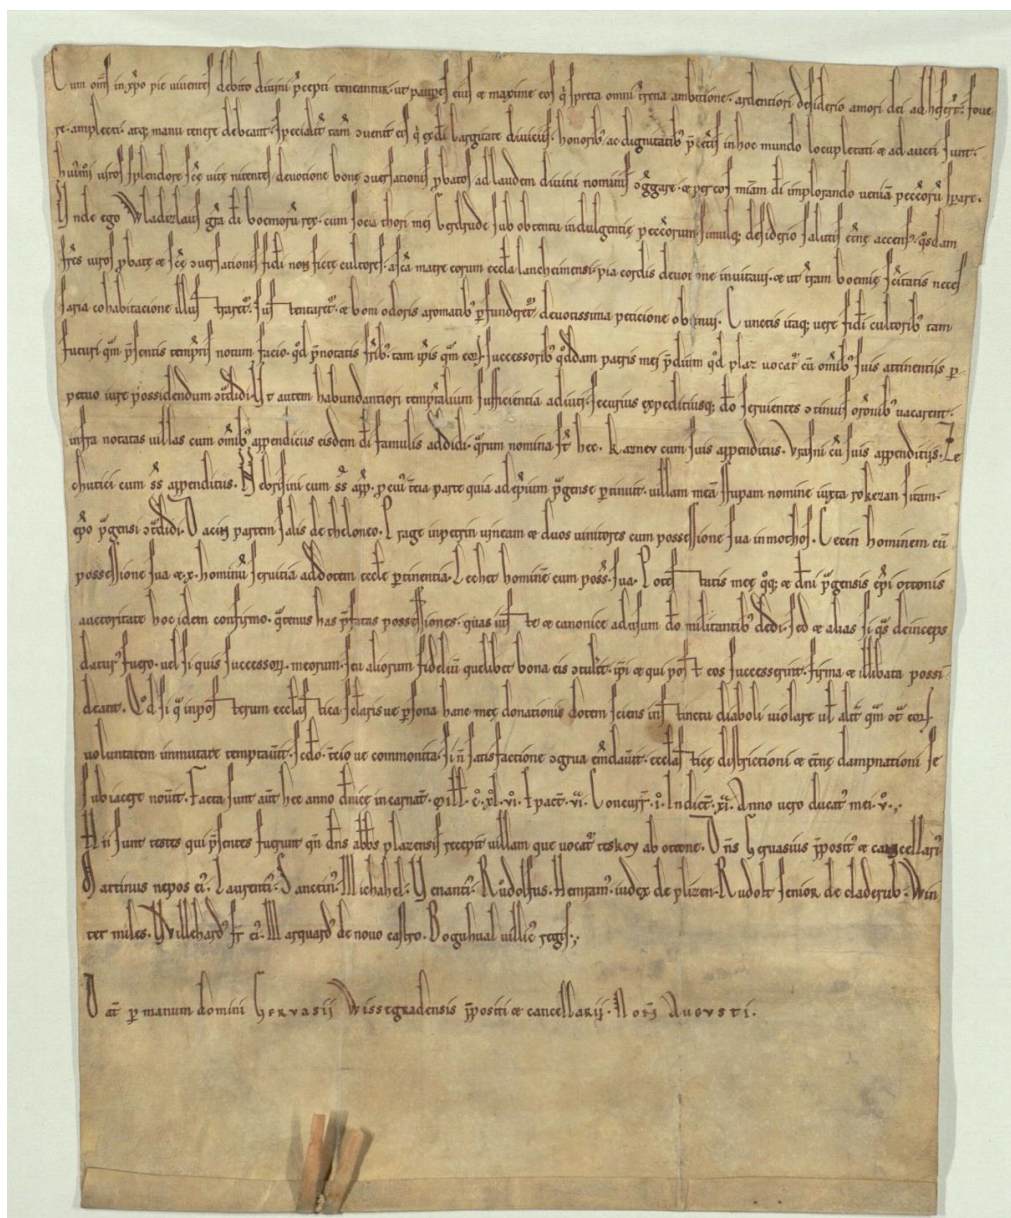 Cum om̄s in xp̄o pie uiuentes debito diuini p̄cepti teneantur. ut paup̱es eius et maxime eos q̇ spreta omni t̄rena ambitione. ardentiori desiderio amori dei adhes̄er̄t. foue
re. amplecti. atq; manu tenere debeant. specialit̄ tam̄ ꝯuenit eis q̇ ex d̄i largitate diuiciis. honorib; ac dignitatib; p̄ cet̄is in hoc mundo locupletati et ad aucti sunt.
huiꝰm̄i uiros splendore sc̄ę uitę nitentes. deuotione bonę ꝯuersationis p̱batos ad laudem diuini nominis ꝯg̃gare. et per eos mīam d̄i implorando ueniā pecc̄oꝝ sp̱are.
Vnde ego Wladizlaus gr̄a d̄i boemoꝝ rex. cum socia thori mei Gerdrude sub obtentu indulgentię pecc̄orum simulq; desiderio salutis et̄nę accensꝰ. q̊sdam
fr̄es uiros p̱batę et sc̄ę ꝯuersationis fidei non fictę cultores. a sc̄a matre eorum eccl̄a lancheimensi. pia cordis deuotione inuitaui. et ut t̄ram boemię sc̄itatis neces
saria cohabitacione illustraret̄. sustentaret̄. et boni odoris aromatib; p̱funderet̄ deuotissima peticione obtinui. Cunctis itaq; uere fidei cultorib; tam
futuri q̄m p̄sentis temp̱is notum facio. q̊d p̄notatis fr̄ib; tam ip̄is q̄m eoꝝ successorib; q̊ddam patris mei p̄dium q̊d plaz uocat̄ cū om̄ib; suis attinentiis p̱
petuo iure possidendum ꝯt̄didi. Vt autem habundantiori temp̱alium sufficientia adiuti. securius expeditiusq; d̄o seruientes ꝯtinuis or̄onib; uacarent.
infra notatas uillas cum om̄ib; appendiciis eisdem d̄i famulis addidi. q̄rum nomina s̄t hec. Karnev cum suis appendiciis. Vrasni cū suis appenditiis. Le
chutici cum s̄s appenditiis. Nebrisini cum s̄s app̱. p̱ cuiꝰ t̄cia parte quia ad ep̄ium p̄gense p̱tinuit. uillam meā stupam nomine iuxta rokezan sitam.
ep̄o p̄gensi ꝯt̄didi. Daein partem salis de theloneo. Prage in petrin uineam et duos uinitores cum possessione sua in mothof. Cecin hominem cū
possessione sua et .x. hominū seruitia ad dotem eccl̄ę p̱tinentia. Lechet hominē cum poss̄. sua. Potestatis meę q̊q; et dn̄i p̄gensis ep̄i ottonis
auctoritate hoc idem confirmo. q̄tenus has p̄fatas possessiones. quas iuste et canonice ad usum d̄o militantib; dedi. sed et alias si q̄s deinceps
daturꝰ fuero. uel si quis successoꝝ meorum. seu aliorum fideliū quelibet bona eis ꝯtulit. ip̄i et qui post eos successerint. firma et illibata possi
deant. Q̊d si q̇ inposterum ecclesiastica sc̄larisue p̱sona hanc meę donationis dotem sciens instinctu diaboli uiolare ul̄ alit̄ q̄m ē eoꝝ
uoluntatem inmutare temptau̇it. sc̄do. t̄cio ue commonita. si n̄ satisfactione ꝯgrua em̄dau̇it. ecclesiasticę districtioni et et̄nę dampnationi se
subiacere nou̇it. Facta sunt aut̄ hec anno d̄nicę incarnat̄. mill̄. c̊. xl. vi. Epact̄. vi. Concurr̄. i. Indict̄. xi. Anno uero ducatꝰ mei. v.
Hii sunt testes qui p̄sentes fuerunt qn̄ dn̄s abb̄s plazensis recepit uillam que uocat̄ teskov ab ottone. Dn̄s Geruasius p̄positꝰ et cancellariꝰ
Martinus nepos eiꝰ. Laurentiꝰ. Iancinꝰ. Michahel. Venantiꝰ. Rudolfus. Henramꝰ. iudex de plizen. Rudolt senior de claderub. Win
ter miles. Willehardꝰ fr̄ eiꝰ. Marquardꝰ de nouo castro. Boguhual uillicꝰ regis.
Dat̄ p̱ manum domini Gervasii Wissegradensis p̄positi et cancellarij. Noꝝ Avgvsti.